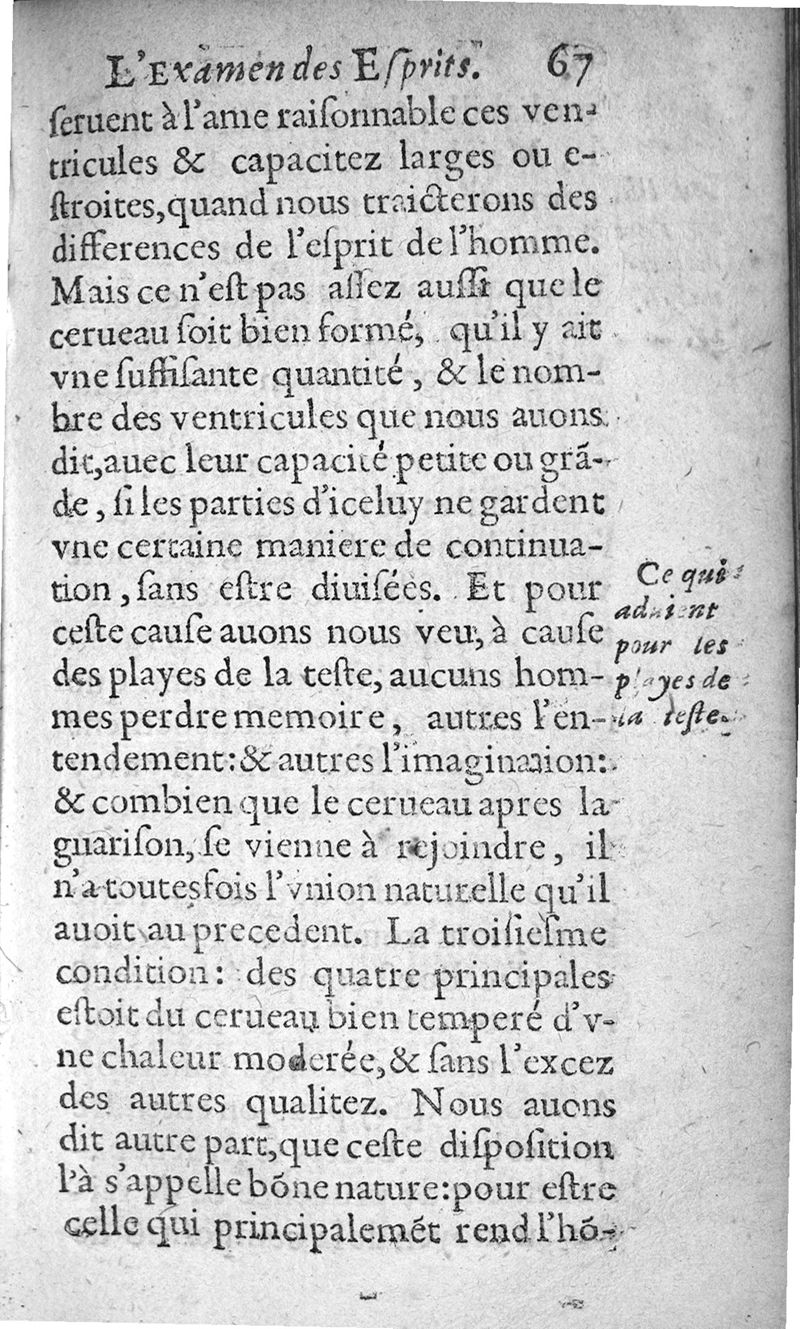 L'Examen des Eſprits. 67
ſeruent à l'ame raiſonnable ces ven-
tricules & capacitez larges ou e-
ſtroites, quand nous traicterons des
differences de l'eſprit de l'homme.
Mais ce n'eſt pas aſſez auſſi que le
cerueau ſoit bien formé, qu'il y ait
vne ſuffiſante quantité, & le nom-
bre des ventricules que nous auons
dit, auec leur capacité petite ou grã-
de, ſi les parties d'iceluy ne gardent
vne certaine maniere de continua-
tion, ſans eſtre diuiſées. Et pour
ceſte cauſe auons nous veu, à cauſe
des playes de la teſte, aucuns hom-
mes perdre memoire, autres l'en-
tendement: & autres l'imagination:
& combien que le cerueau apres la
guariſon, ſe vienne à rejoindre, il
n'a toutesfois l'vnion naturelle qu'il
auoit au precedent. La troiſieſme
condition: des quatre principales
eſtoit du cerueau bien temperé d'v-
ne chaleur moderée, & ſans l'excez
des autres qualitez. Nous auons
dit autre part, que ceſte diſpoſition
l'à s'appelle bõne nature: pour eſtre
celle qui principalemẽt rend l'hõ-
Ce qui
aduient
pour les
playes de
la teſte.